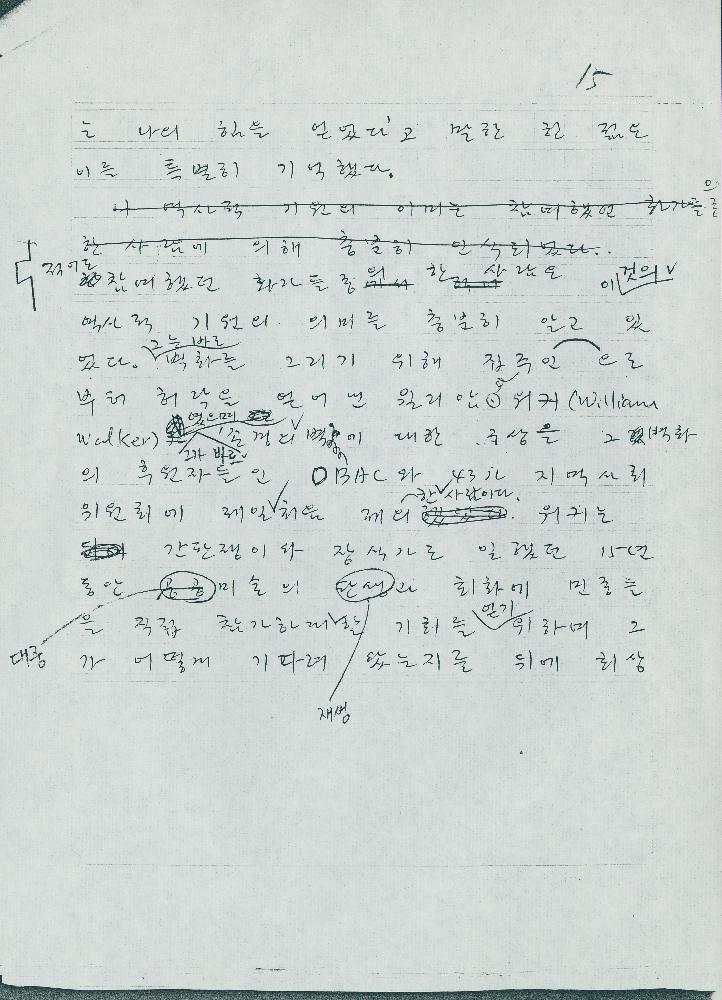 15
는 나의 힘을 얻었다'고 말한 한 젊은
이를 특별히 기억했다.
이 역사적 기원의 의미는 참여했던 화가들 중
한 사람에 의해 충분히 인식되었다.
적어도 참여했던 화가들 중 한 사람은 이것의
역사적 기원의 의미를 충분히 알고 있
었다. 그는 바로 벽화를 그리기 위해 집주인으로
부터 허락을 얻어낸 윌리암 워커 (William
Walker) 였으며 '존경의 벽'에 대한 구상을 그 벽화
그가 바로
의 후원자들인 OBAC와 43가 지역사회
위원회에 제일 처음 제의한 사람이다. 워커는
간판쟁이와 장식가로 일했던 15년
동안 공공미술의 탄생과 회화에 민중들
을 직접 참가하게 할 기회를 얻기 위하여 그
대중 가 어떻게 기다려 왔는지를 뒤에 회상
재생